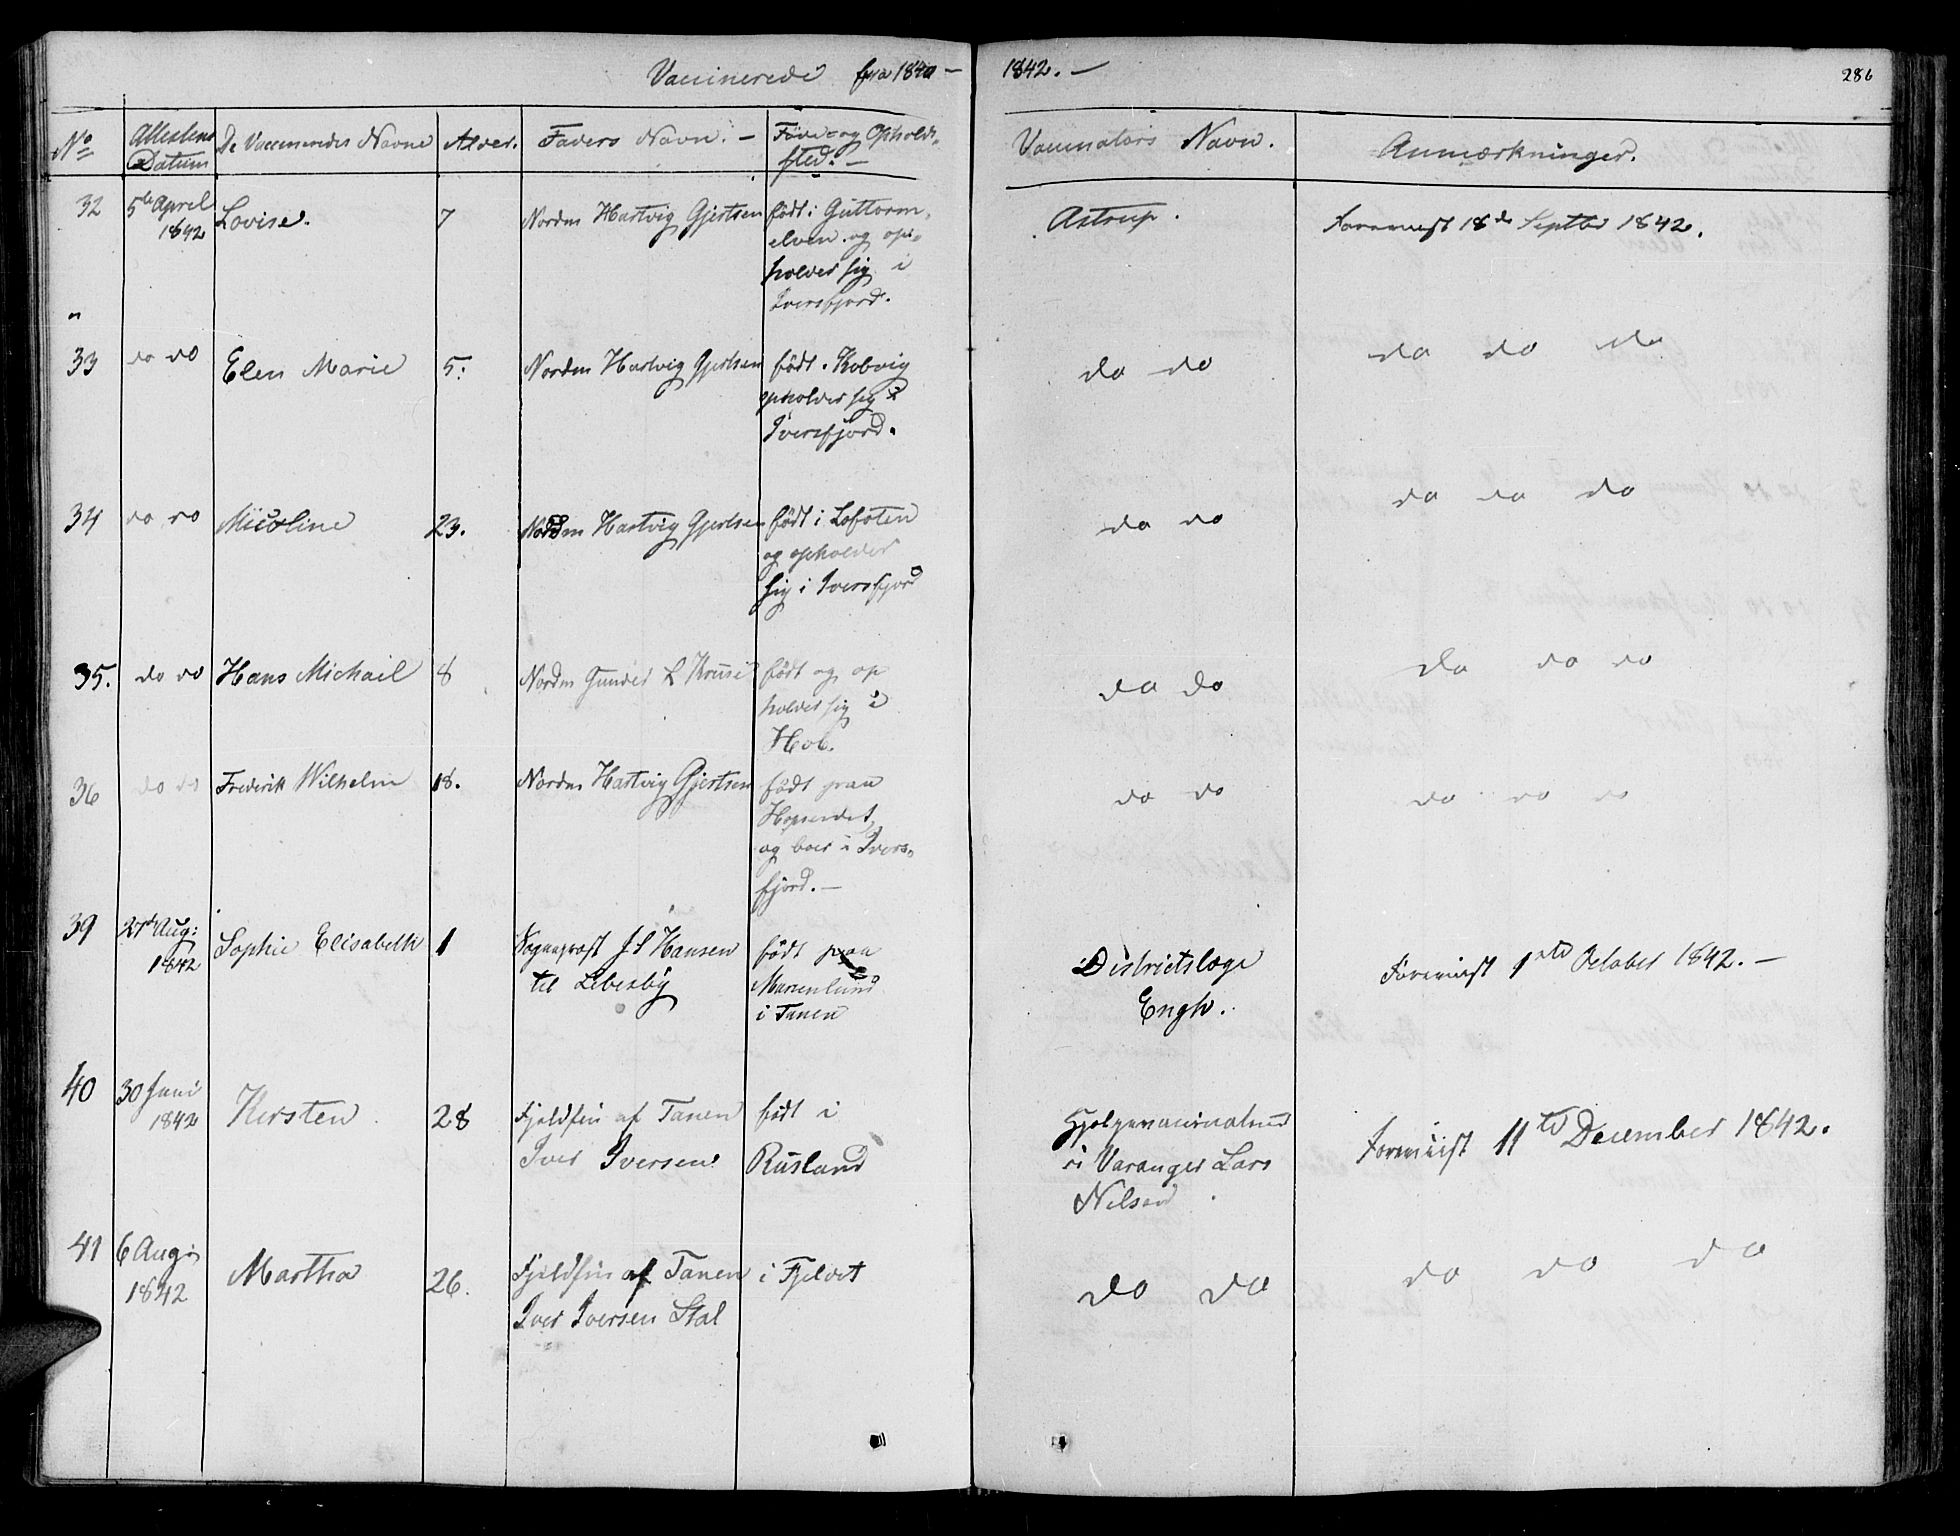 Vaccinerede fra 1840 — 1842. —
286
No
Attestens Datum
De Vaccineredes Navne
Alder.
Faders Navn. —
Føde- og Opholds-
sted. —
Vaccinators Navn.
Anmærkninger.
32
5te April
1842
Lovise.
7
Nordm Hartvig Gjertsen
født i Guttorm-
elven og op-
holder sig i
Iversfjord.
Astrup.
Foreviist 18de Septbr 1842.
33
do do
Elen Marie
5.
Nordm Hartvig Gjertsen
født i Kobvig
opholder sig i
Iversfjord.
do do
do do do
34
do do
Nicoline
23.
Nordm Hartvig Gjertsen
født i Lofoten
og opholder
sig i Iversfjord
do do
do do do
35.
do do
Hans Michail
8
Nordm Gunder L Kruse
født og op
holder sig i
Hob.
do do
do do do
36
do do
Frederik Wilhelm
18.
Nordm Hartvig Gjertsen
født paa
Hopseidet
og boer i Ivers-
fjord. —
do do
do do do
39
27de Aug:
1842
Sophie Elisabeth
1
Sogneprest J. S Hansen
til Lebesby
født paa
Marienlund
i Tanen
Districtslæge
Engh.
Foreviist 9de October 1842. —
40
30 Juni
1842
Kirsten
28
Fjeldfin af Tanen
Iver Iversen
født i
Rusland
Hjelpevaccinateur
i Varanger Lars
Nilsen
Foreviist 11te December 1842.
41
6 Aug:
1842
Martha
26.
Fjeldfin af Tanen
Iver Iversen Stal
i Fjeldet
do do
do do do